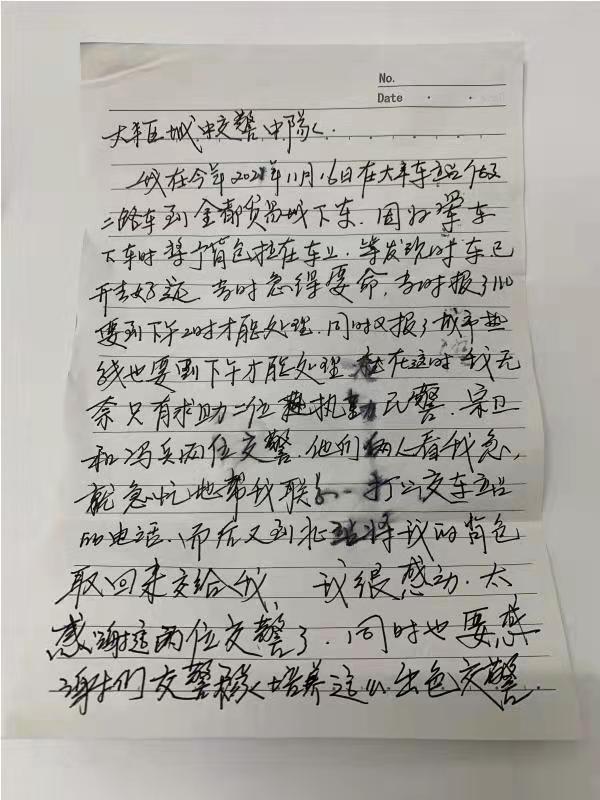 No.
Date
大丰区城中交警中队：
我在今年2021年11月16日在大丰车站个
二路车到金都贸易城下车，因为晕车
下车时将背包拉在车上，等发现时车已
开去好远，当时急得要命，当时报了110
要到下午2时才能处理，同时又报了城市热
线也要到下午才能处理，在这时我无
奈只有求助二位执勤民警，宗卫
和冯兵两位交警，他们俩人看我急，
就急忙地帮我联系，打公交车站
的电话，而后又到站将我的背包
取回来交给我，我很感动，太
感谢这两位交警了，同时也要感
谢们交警队培养这么出色交警。